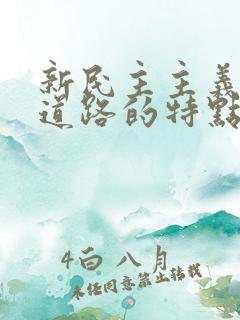 新民主主義
道路的特點
4白 八月
未经同意禁止转载